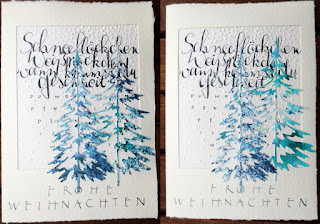 Schneeflöckchen
Weißröckchen
wann kommst du
geschneit
FROHE
WEIHNACHTEN
Schneeflöckchen
Weißröckchen
wann kommst du
geschneit
FROHE
WEIHNACHTEN